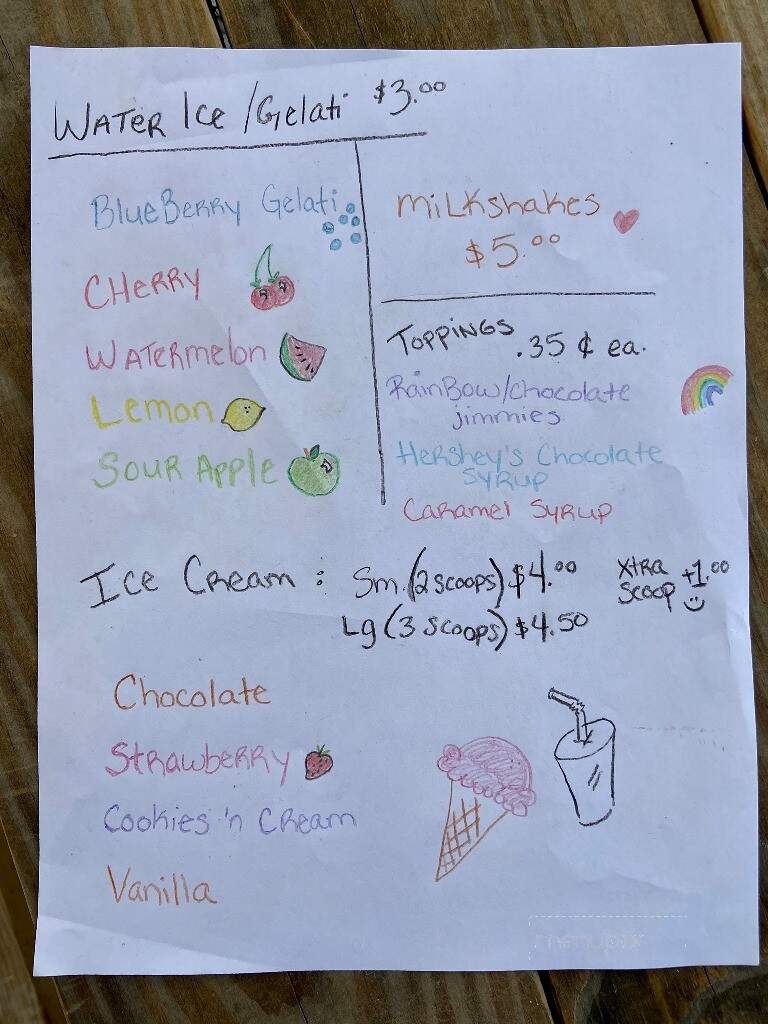 WATER Ice /Gelati $3.00
BlueBerry Gelati
CHerry
WATermelon
Lemon
SOUR APPLe
MiLKshakes
$5.00
TOPPINGS .35 ¢ ea.
RainBow/chocolate
jimmies
Hershey's Chocolate
SYRUP
Caramel SYRUP
Ice Cream : Sm. (2 scoops) $4.00
Lg (3 scoops) $4.50
Xtra +1.00
Scoop
Chocolate
Strawberry
Cookies 'n Cream
Vanilla
menupix